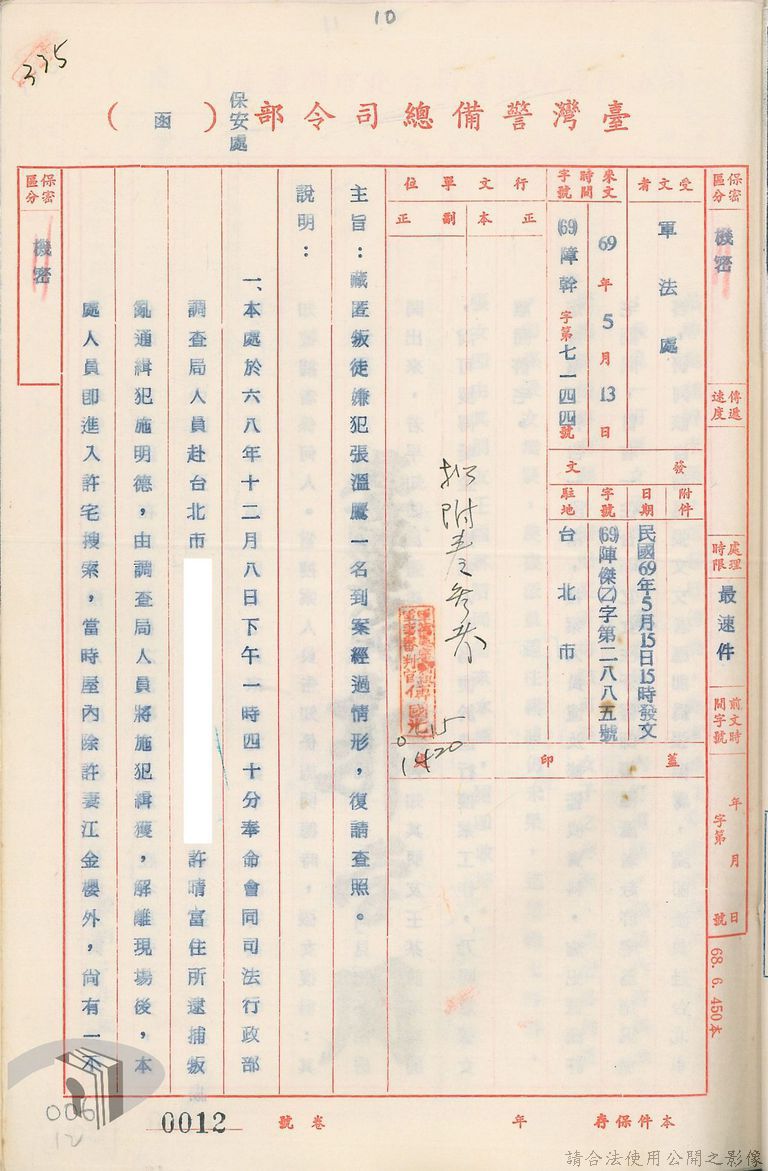 10
335
臺灣警備總司令部(函)
保安處
保密區分
機密
傳遞速度
處理時限
最速件
前文時間字號
年 月 日
字第 號
68. 6. 450本
受文者
軍法處
來文
時間
字號
69年5月13日
(69)障幹字第七一四四號
行文單位
正本
副
正
發文
附件
日期
民國69年5月15日15時發文
字號
(69)陳傑(乙)字第二八八五號
駐地
台北市
蓋印
15
1420
主旨:藏匿叛徒嫌犯張溫鷹一名到案經過情形,復請查照。
說明:
一、本處於六八年十二月八日下午一時四十分奉命會同司法行政部
調查局人員赴台北市 許晴富住所逮捕叛
亂通緝犯施明德,由調查局人員將施犯緝獲,解離現場後,本
處人員即進入許宅搜索,當時屋內除許妻江金櫻外,尚有一不
保密區分
機密
本件保存 年
卷號
0012
006
12
請合法使用公開之影像